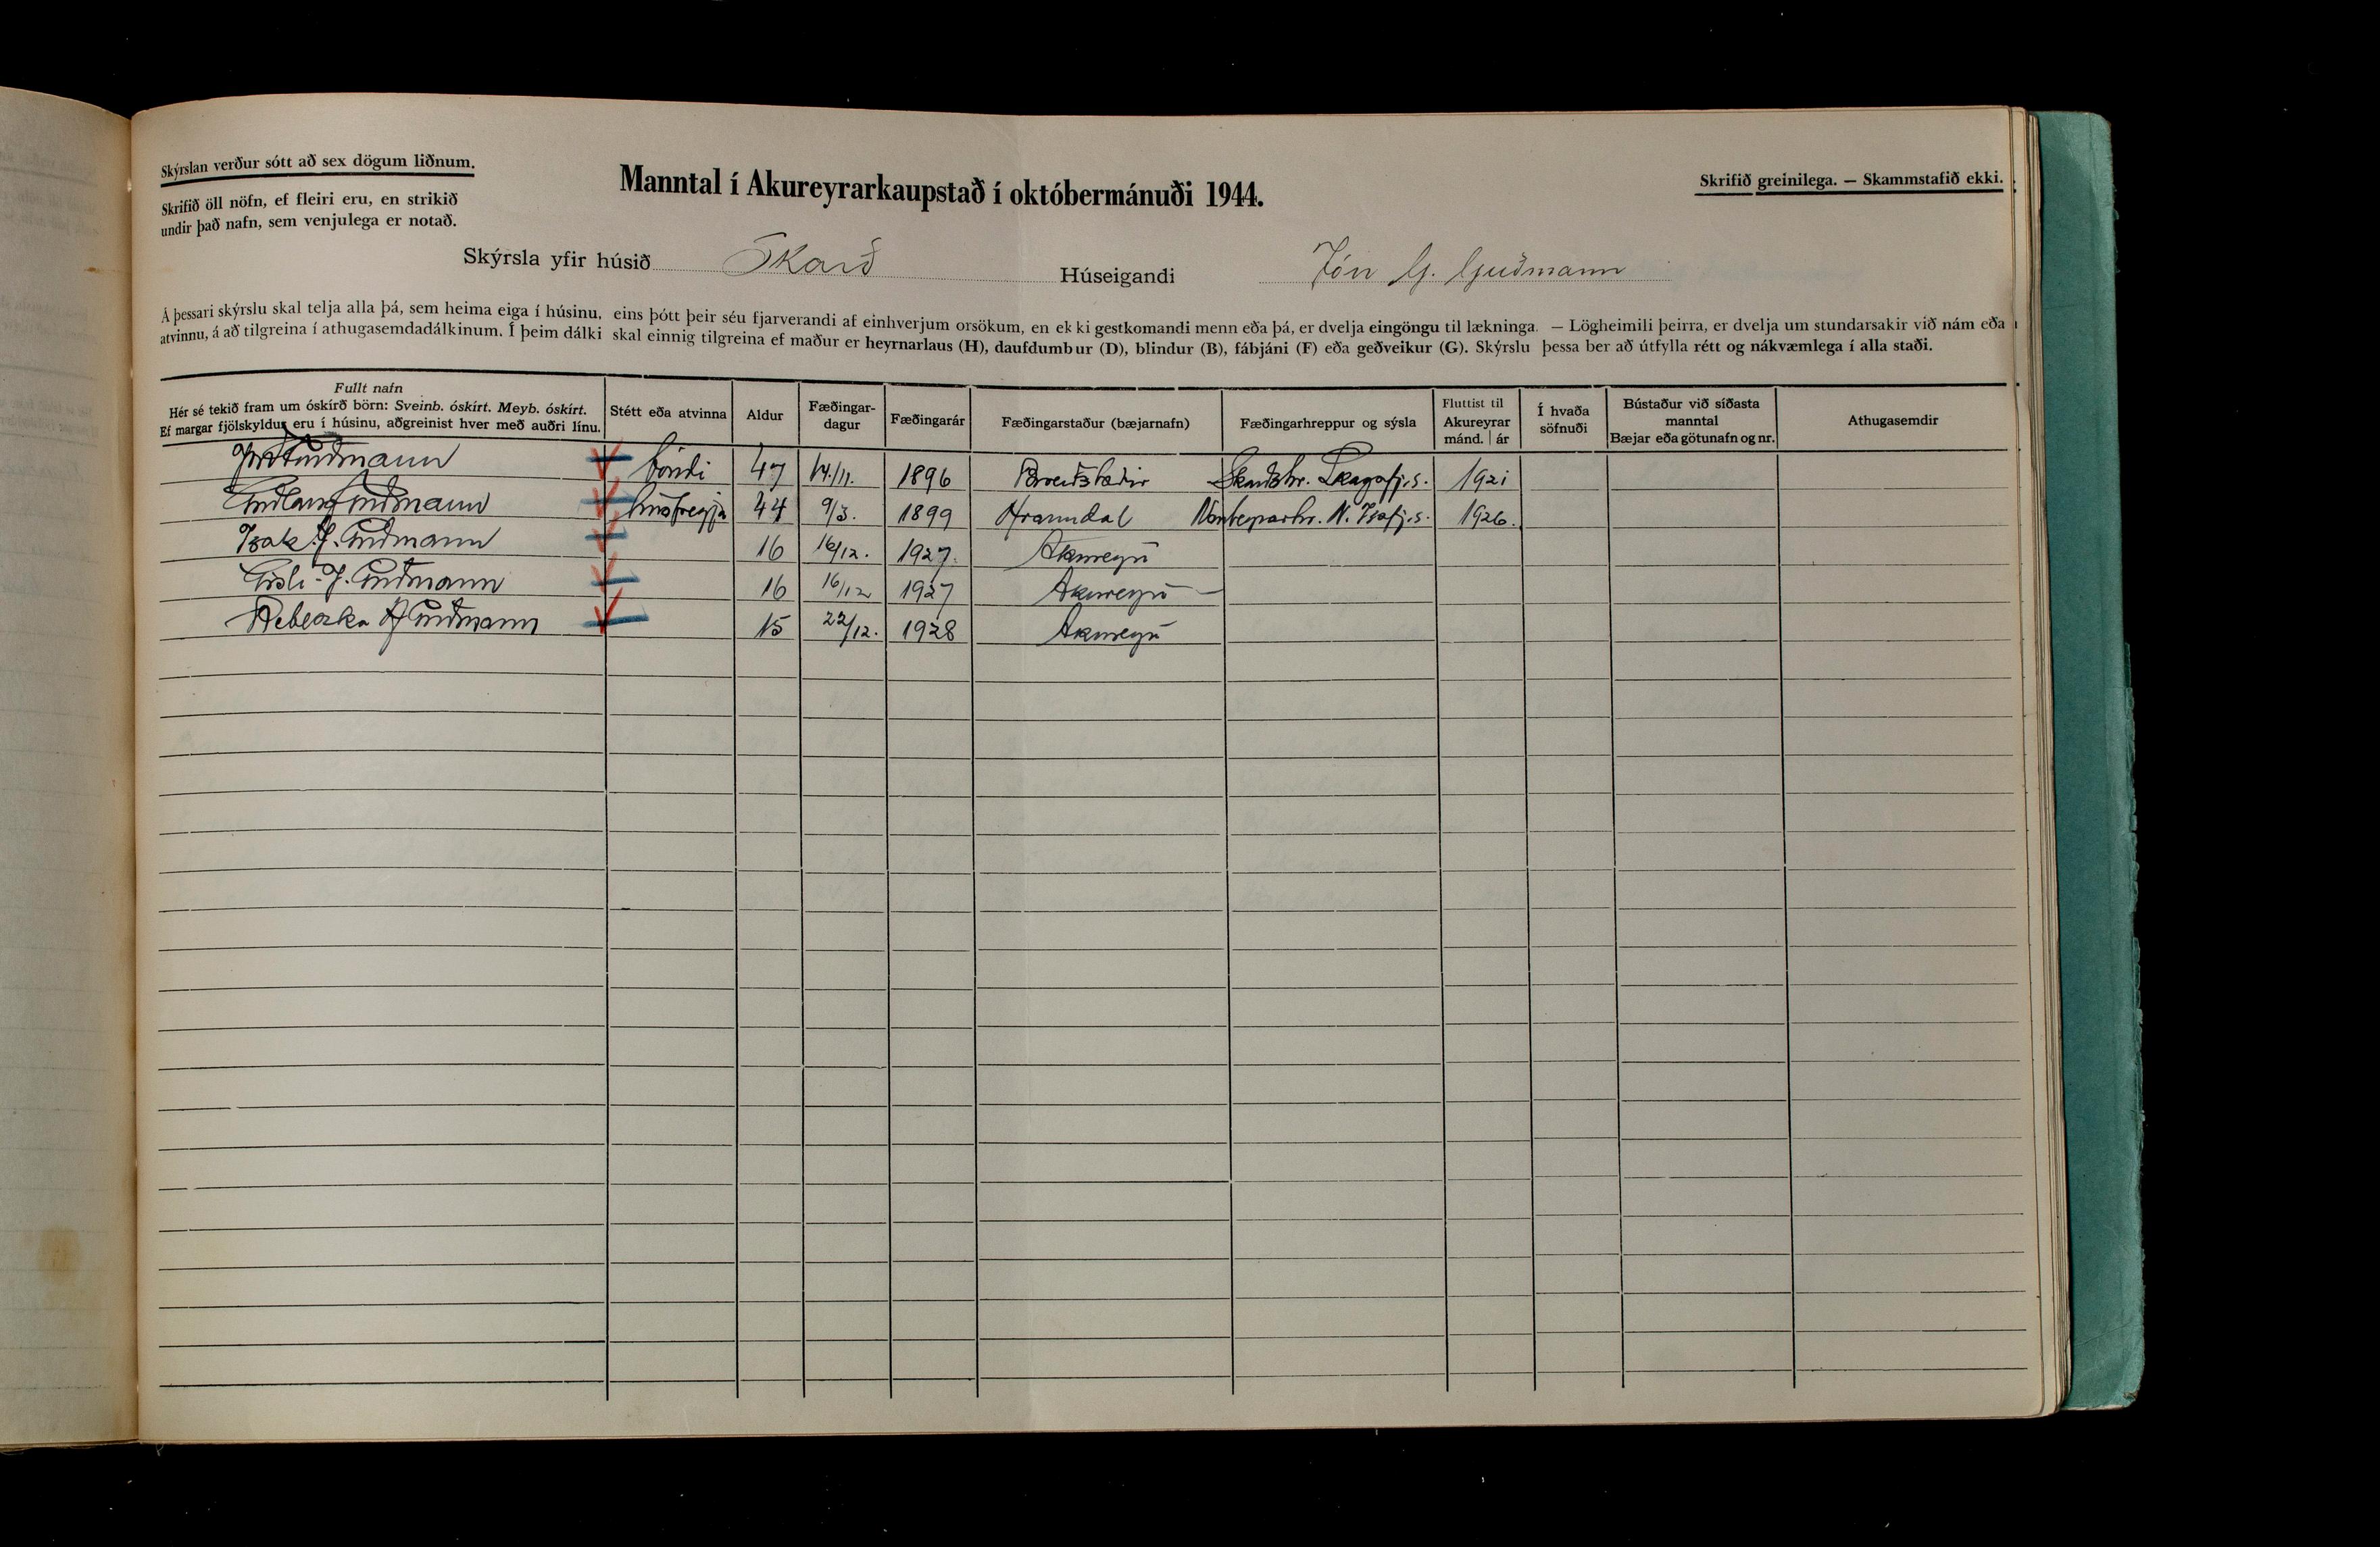 Skýrslan verður sótt að sex dögum liðnum.
Skrifið öll nöfn, ef fleiri eru, en strikið
undir það nafn, sem venjulega er notað.
Manntal í Akureyrarkaupstað í októbermánuði 1944.
Skrifið greinilega. — Skammstafið ekki.
Skýrsla yfir húsið Skarð Húseigandi Jón G. Guðmann
Á þessari skýrslu skal telja alla þá, sem heima eiga í húsinu, eins þótt þeir séu fjarverandi af einhverjum orsökum, en ekki gestkomandi menn eða þá, er dvelja eingöngu til lækninga. — Lögheimili þeirra, er dvelja um stundarsakir við nám eða
atvinnu, á að tilgreina í athugasemdadálkinum. Í þeim dálki skal einnig tilgreina ef maður er heyrnarlaus (H), daufdumbur (D), blindur (B), fábjáni (F) eða geðveikur (G). Skýrslu þessa ber að útfylla rétt og nákvæmlega í alla staði.
Fullt nafn
Hér sé tekið fram um óskírð börn: Sveinb. óskírt. Meyb. óskírt.
Ef margar fjölskyldur eru í húsinu, aðgreinist hver með auðri línu.
Stétt eða atvinna
Aldur
Fæðingar-
dagur
Fæðingarár
Fæðingarstaður (bæjarnafn)
Fæðingarhreppur og sýsla
Fluttist til
Akureyrar
mánd. | ár
Í hvaða
söfnuði
Bústaður við síðasta
manntal
Bæjar eða götunafn og nr.
Athugasemdir
Guðmann bóndi 47 14./11. 1896 Breiðstaðir Skarðshr. Skagafj.s. 1921
Guðlaug Guðmann húsfreyja 44 9/3. 1899 Hramndal N. Ísafj.s. 1926.
Ísak J. Guðmann 16 16/12. 1927. Akureyri
Gísli J. Guðmann 16 16/12 1927 Akureyri
Rebekka Guðmann 15 22/12. 1928 Akureyri